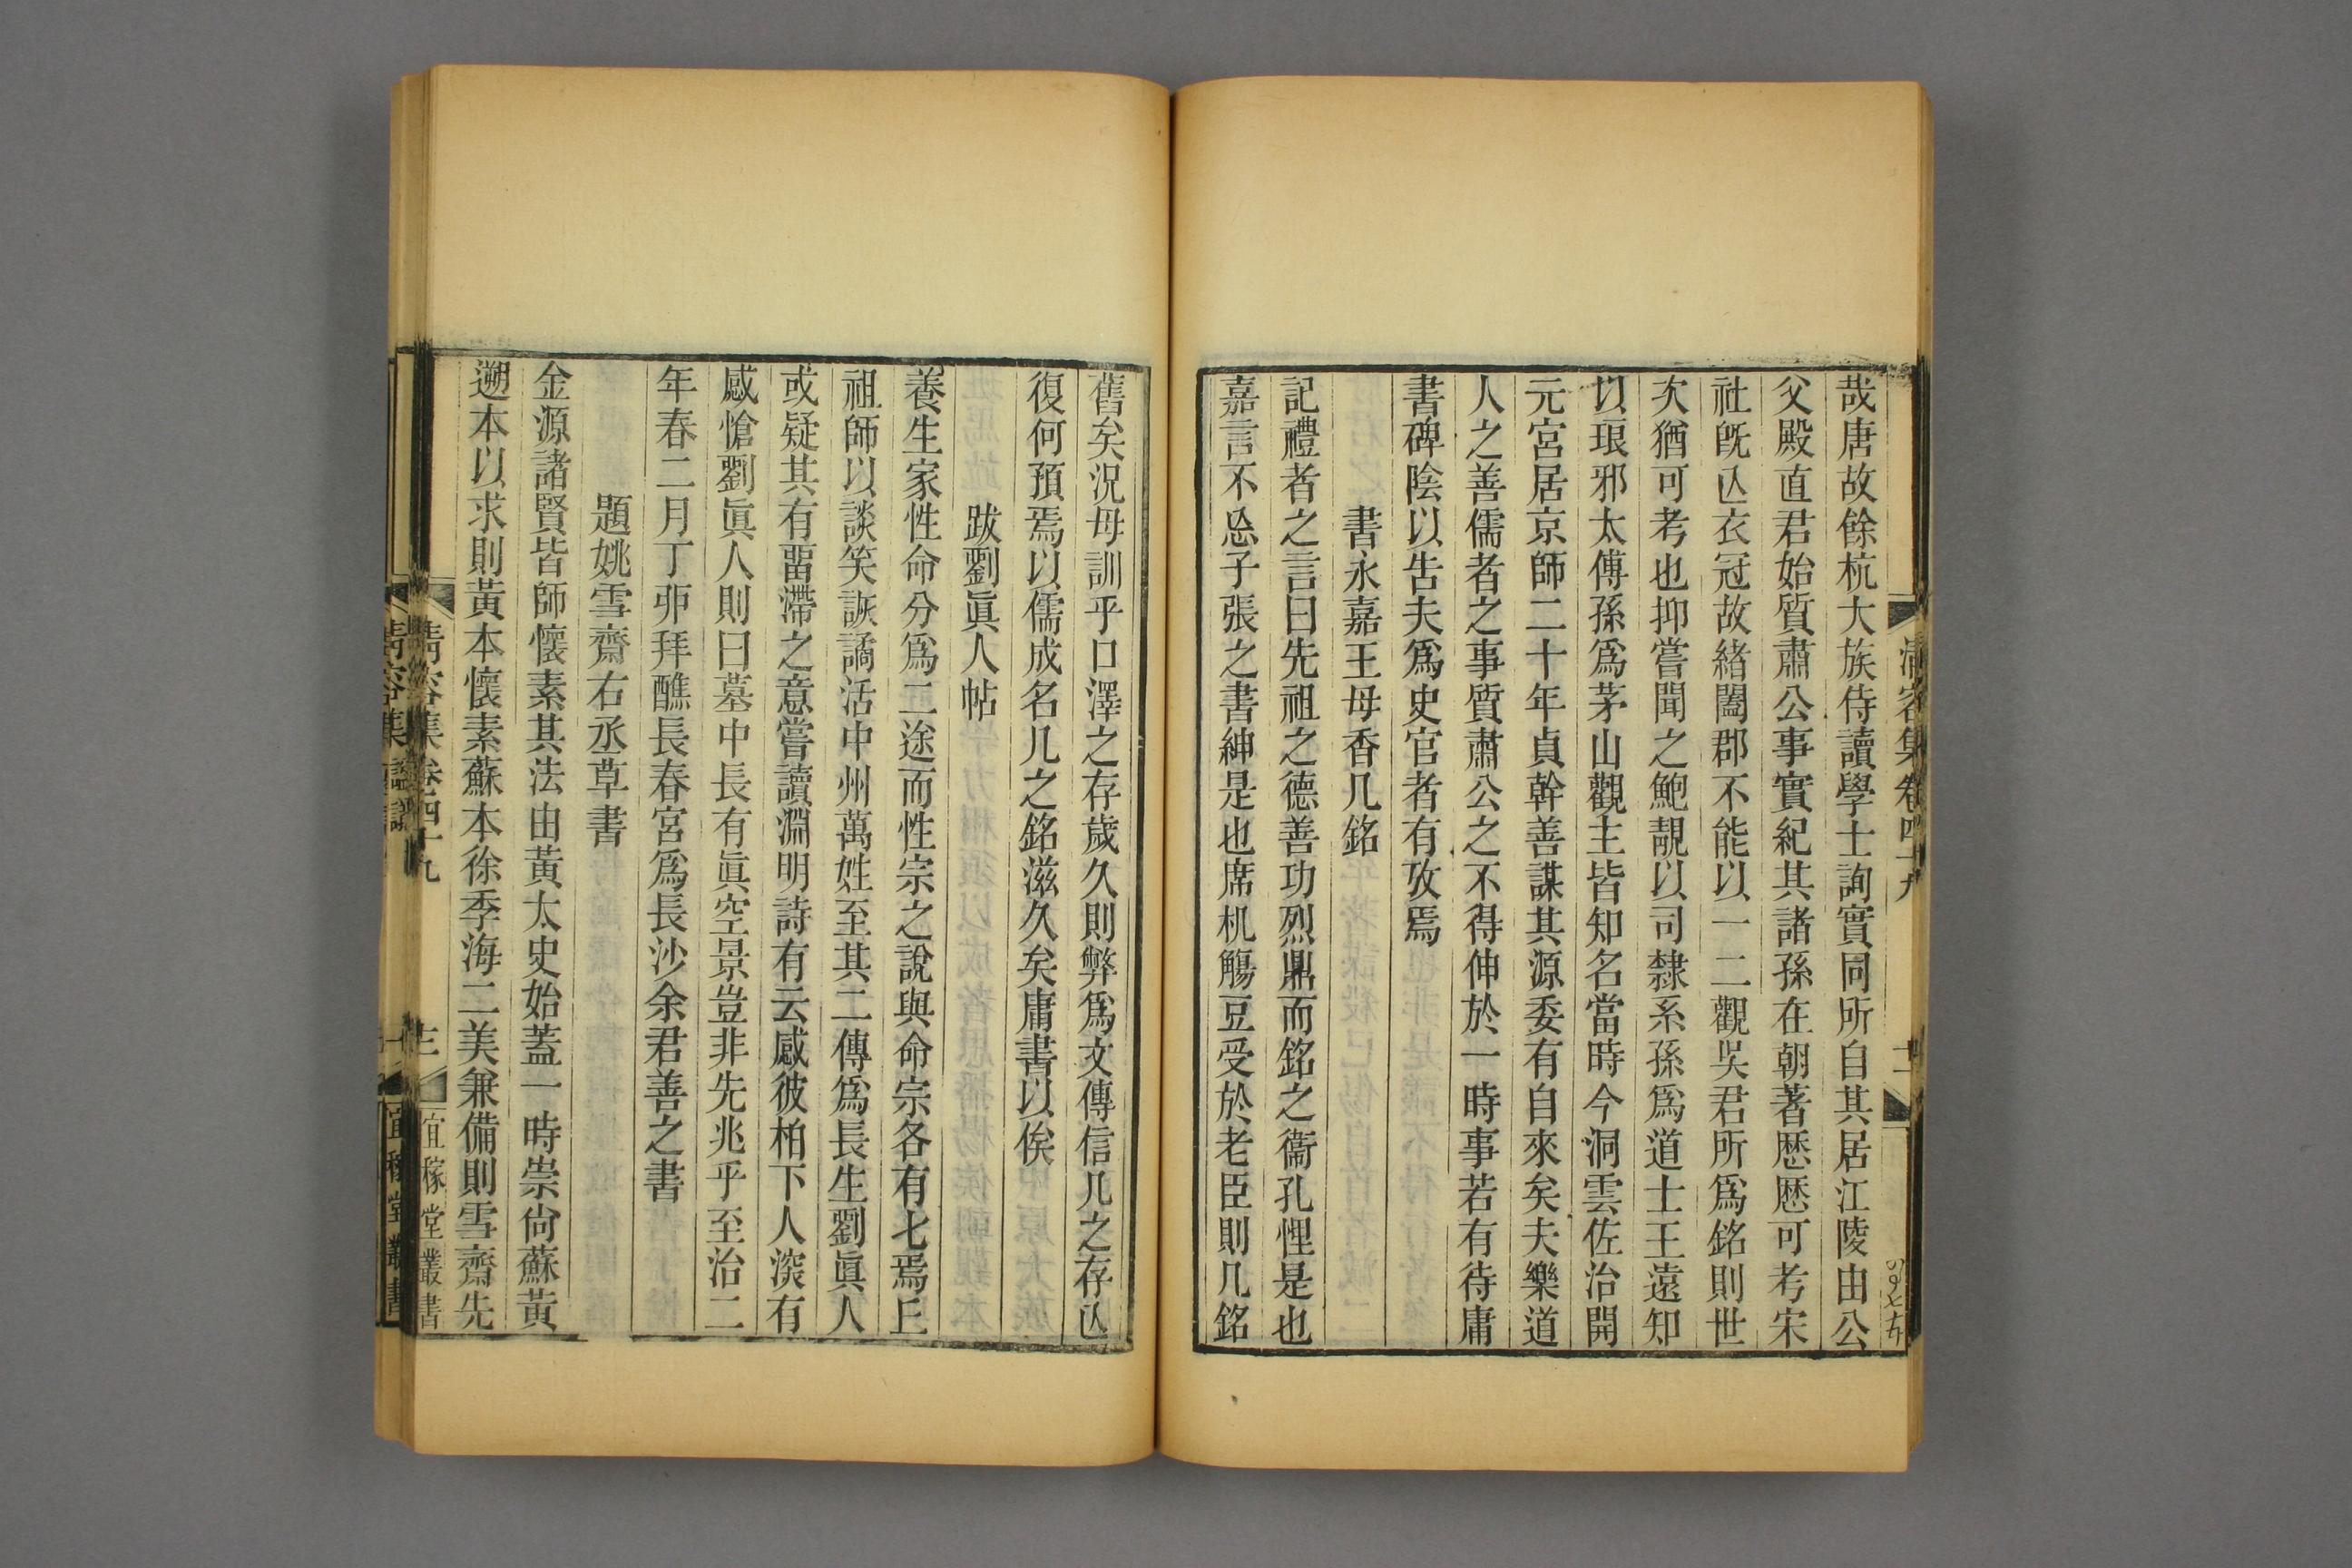 清容集卷四十九
二
哉唐故餘杭大族侍讀學士詢實同所自其居江陵由公
父殿直君始質肅公事實紀其諸孫在朝著歷歷可考宋
社旣亾衣冠故緒闔郡不能以一二觀吳君所爲銘則世
次猶可考也抑嘗聞之鮑靚以司隸系孫爲道士王遠知
以琅邪太傳孫爲茅山觀主皆知名當時今洞雲佐治開
元宮居京師二十年貞幹善謀其源委有自來矣夫樂道
人之善儒者之事質肅公之不得伸於一時事若有待庸
書碑陰以告夫爲史官者有攷焉
書永嘉王母香几銘
記禮者之言曰先祖之德善功烈鼎而銘之衞孔悝是也
嘉言不忘子張之書紳是也席机觴豆受於老臣則几銘
舊矣況母訓乎口澤之存歲久則弊爲文傳信几之存亾
復何預焉以儒成名几之銘滋久矣庸書以俟
跋劉眞人帖
養生家性命分爲二途而性宗之說與命宗各有七焉丘
祖師以談笑詼譎活中州萬姓至其二傳爲長生劉眞人
或疑其有畱滯之意嘗讀淵明詩有云感彼柏下人深有
感愴劉眞人則曰墓中長有眞空景豈非先兆乎至治二
年春二月丁卯拜醮長春宮爲長沙余君善之書
題姚雪齋右丞草書
金源諸賢皆師懷素其法由黃太史始蓋一時崇尙蘇黃
遡本以求則黃本懷素蘇本徐季海二美兼備則雪齋先
清容集卷四十九
三
宜稼堂叢書
清容集
宜稼堂叢書